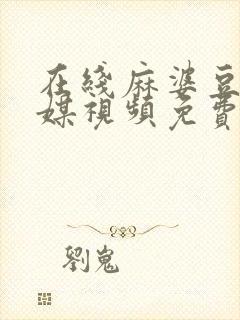 在綫麻婆豆
媒視頻免費
劉嵬